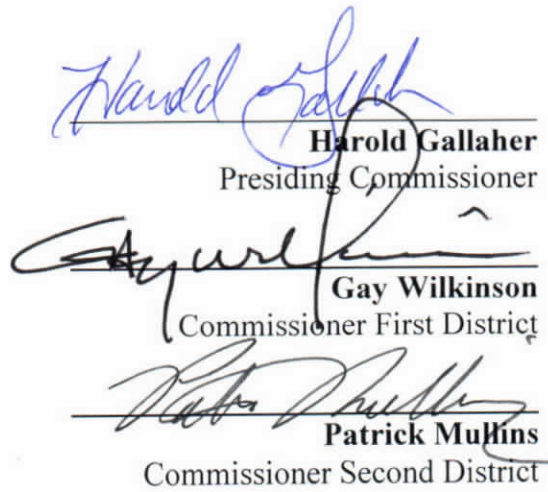 Harold Gallaher
Harold Gallaher
Presiding Commissioner
Gay Wilkinson
Gay Wilkinson
Commissioner First District
Patrick Mullins
Patrick Mullins
Commissioner Second District